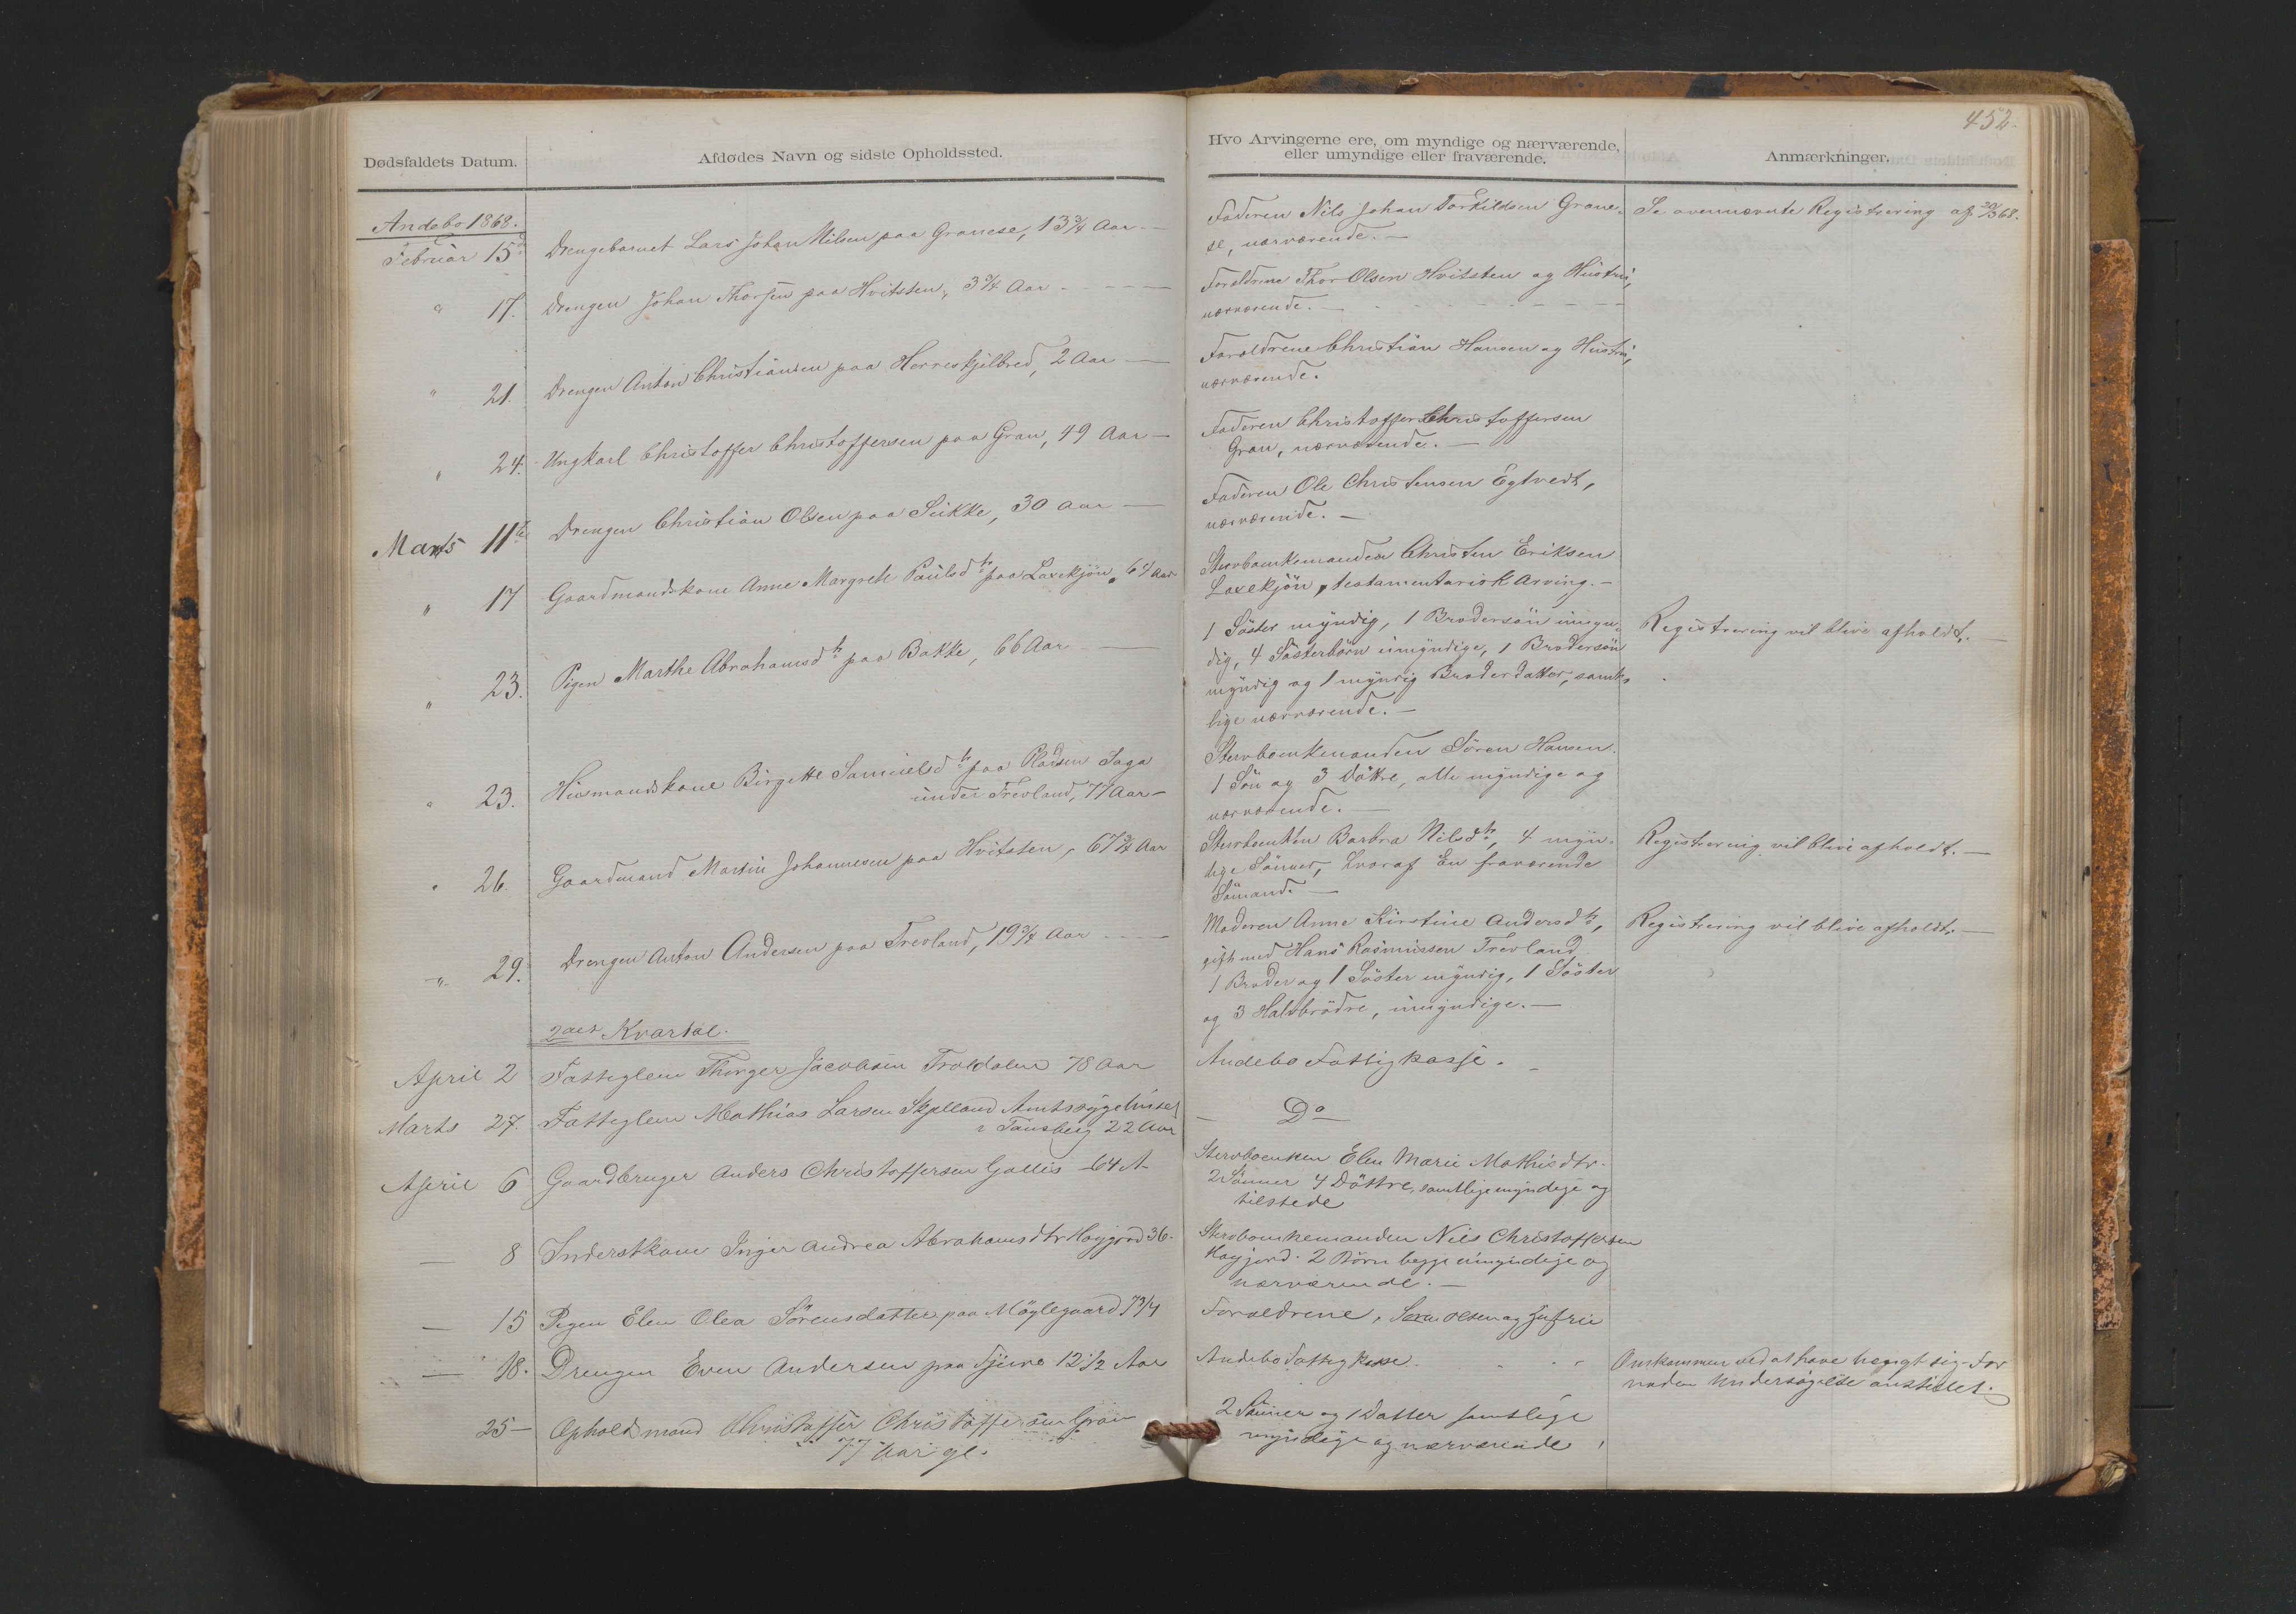 452.
Dødsfaldets Datum.
Afdødes Navn og sidste Opholdssted.
Hvo Arvingerne ere, om myndige og nærværende,
eller umyndige eller fraværende.
Anmærkninger.
Andebo 1868.
Februar 15de
Drengebarnet Lars Johan Nilsen paa Granese, 13 3/4 Aar —
Faderen Nils Johan Torkildsen Grane-
se, nærværende. —
Se ovennævnte Registrering af 30/3 68.
" 17.
Drengen Johan Thorsen paa Hvitsten, 3 3/4 Aar — — —
Forældrene Thor Olsen Hvitsten og Hustru,
nærværende. —
" 21.
Drengen Anton Christiansen paa Herreskjilbred, 2 Aar —
Forældrene Christian Hansen og Hustru,
nærværende.
" 24.
Ungkarl Christoffer Christoffersen paa Gran, 49 Aar —
Faderen Christoffer Christoffersen
Gran, nærværende. —
Marts 11te
Drengen Christian Olsen paa Sukke, 30 Aar —
Faderen Ole Christensen Egtvedt,
nærværende. —
" 17
Gaardmandskone Anne Margrete Paulsdtr paa Laxekjön, 64 Aar
Stervboenkemanden Christen Eriksen
Laxekjön, testamentarisk Arving. —
" 23.
Pigen Marthe Abrahamsdtr paa Bakke, 66 Aar —
1 Söster myndig, 1 Brodersön umyn-
dig, 4 Sösterbörn umyndige, 1 Brodersön
myndig og 1 myndig Broderdatter, samt-
lige nærværende. —
Registrering vil blive afholdt. —
" 23.
Husmandskone Birgitte Samuelsdtr paa Pladsen Saga
under Trevland, 77 Aar —
Stervboenkmanden Sören Hansen.
1 Sön og 3 Döttre, alle myndige og
nærværende. —
" 26.
Gaardmand Martin Johannesen paa Hvitsten, 67 3/4 Aar
Stervboenken Barbra Nilsdtr, 4 myn-
dige Sönner, hvoraf En fraværende
Sömand. —
Registrering vil blive afholdt. —
" 29.
Drengen Anton Andersen paa Trevland, 19 3/4 Aar —
Moderen Anne Kirstine Andersdtr,
gift med Hans Rasmussen Trevland
1 Broder og 1 Söster myndig, 1 Söster
og 3 Halvbrödre, umyndige. —
Registrering vil blive afholdt. —
2det Kvartal.
April 2
Fattiglem Thorger Jacobsen Troldalen 78 Aar
Andebo Fattigkasse.
Marts 27.
Fattiglem Mathias Larsen Skjelland Amtssygehuset
i Tönsberg 22 Aar
— Do —
April 6
Gaardbruger Anders Christoffersen Gallis 64 A
Stervboenken Elen Marie Mathisdtr
2 Sönner 4 Döttre, samtlige myndige og
tilstede
— 8
Inderstkone Inger Andrea Abrahamsdtr Høyjord 36.
Stervboenkemanden Nils Christoffersen
Høyjord. 2 Börn begge umyndige og
nærværende. —
— 15
Pigen Elen Olea Sörensdatter paa Möylegaard 7 3/4
Forældrene, Søren Olsen og Jufrie
— 18.
Drengen Even Andersen paa 12 1/2 Aar
Andebo Fattigkasse.
Omkommen ved at have hængt sig. For
nøden Undersögelse anstillet.
25 —
Opholdsmand Christoffer Christoffersen Gran
77 Aar gl.
2 Sönner og 1 Datter samtlige
myndige og nærværende